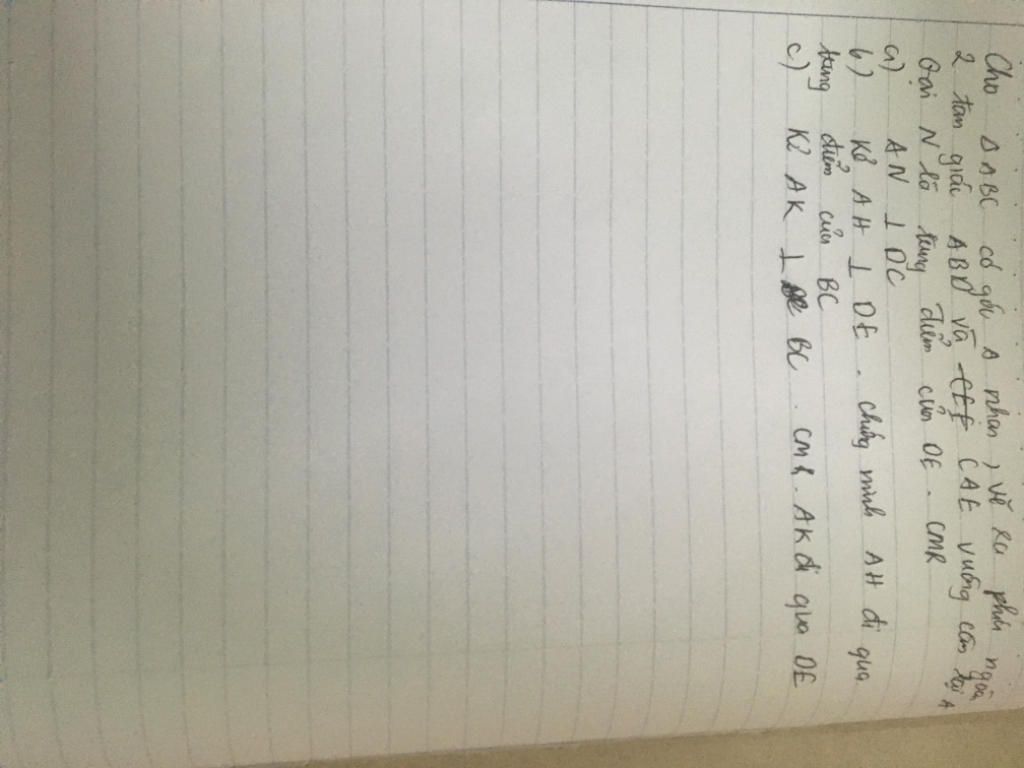 Cho Δ ABC có góc A nhọn, vẽ ra phía ngoài
2 tam giác ABD và CAE vuông cân tại A
Gọi N là trung điểm của DE. CMR
a) AN ⊥ DC
b) Kẻ AH ⊥ DE. chứng minh AH đi qua
trung điểm của BC
c) Kẻ AK ⊥ BC. CMR. AK đi qua DE